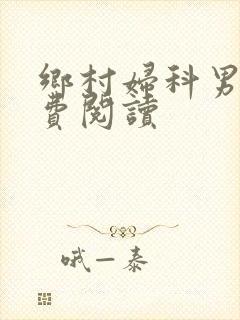 鄉村婦科男
費閱讀
哦一泰